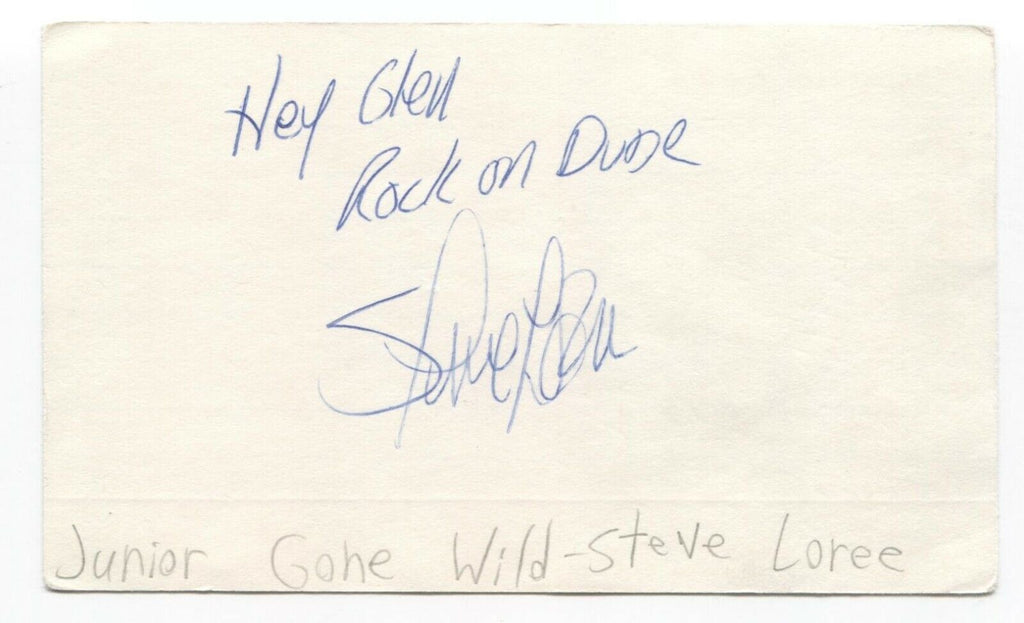 Hey Glen
Rock on Dude
Steve Loree
Junior Gone Wild-Steve Loree